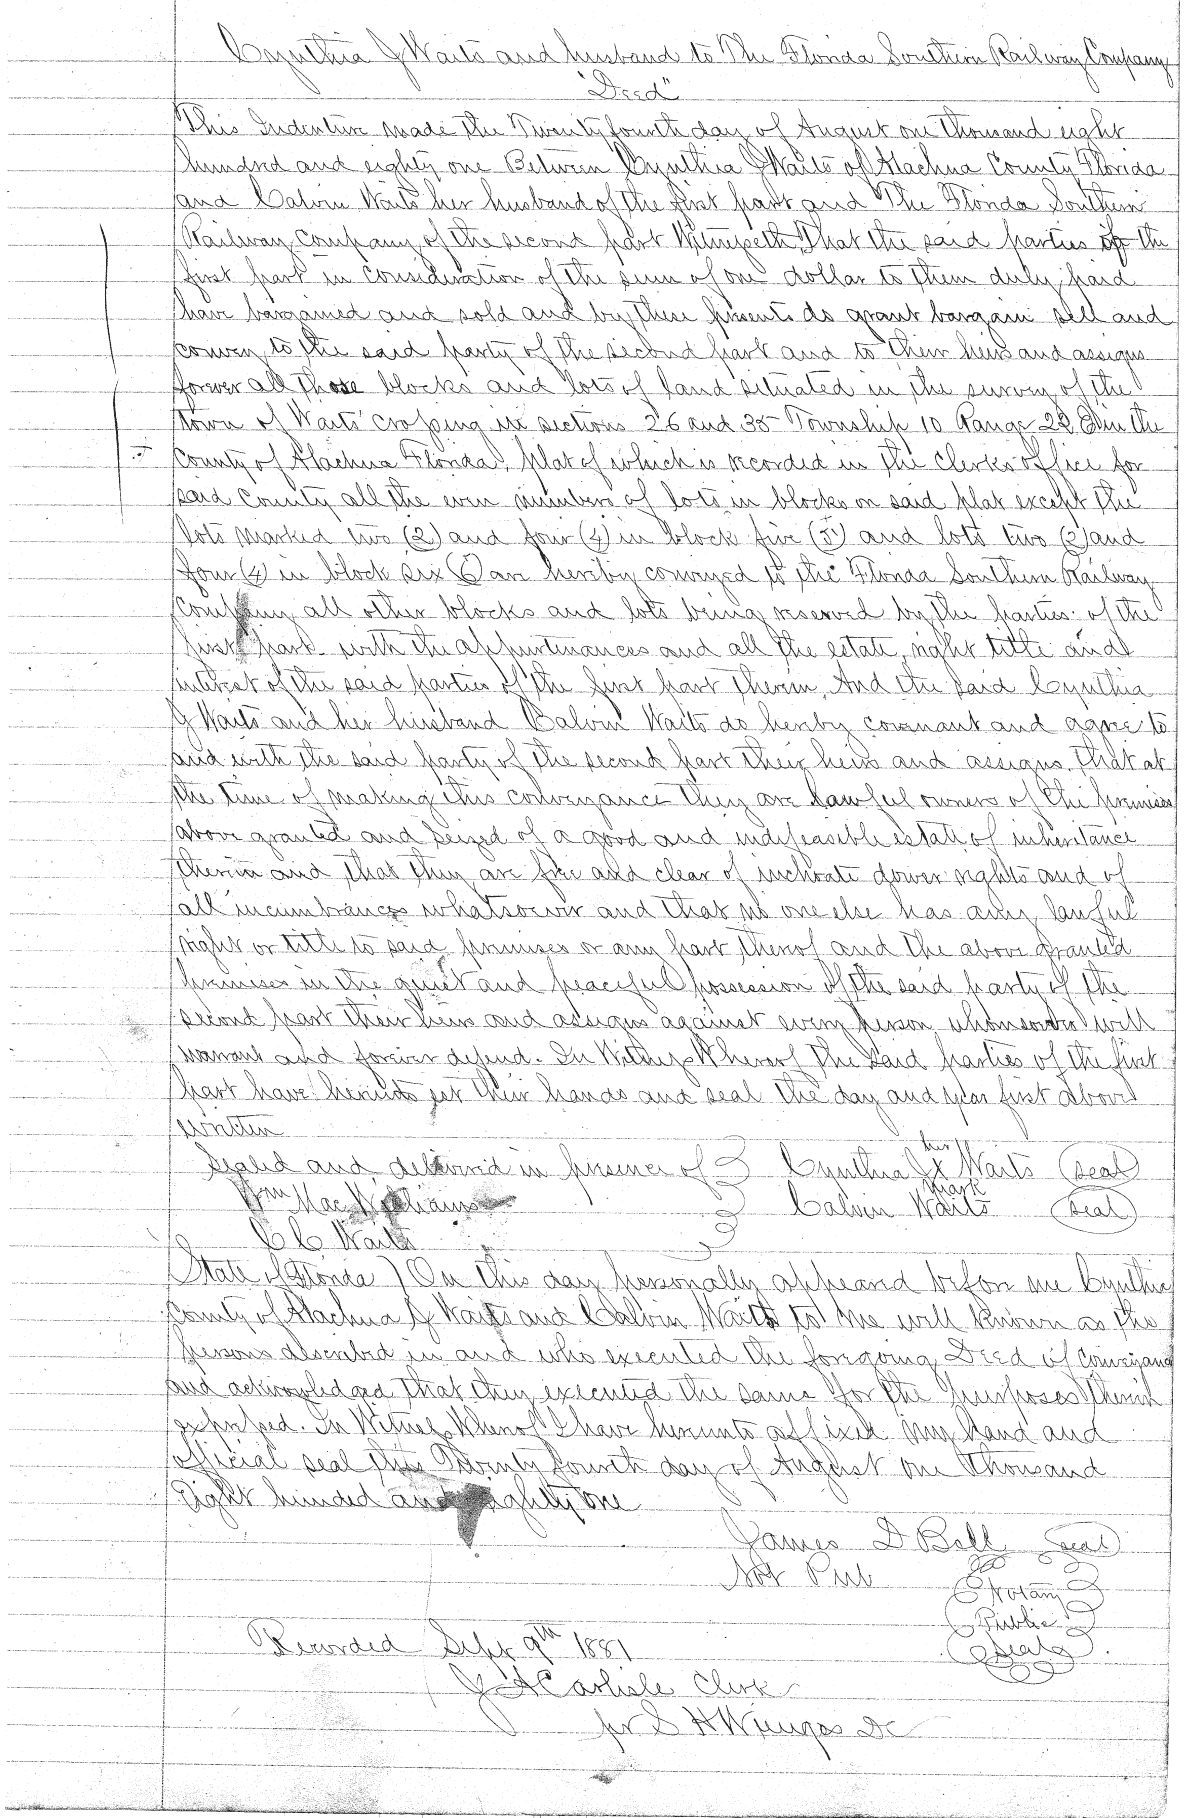 Cynthia J Waits and husband to The Florida Southern Railway Company
"Deed"
This Indenture made the Twenty fourth day of August one thousand eight
hundred and eighty one Between Cynthia J Waits of Alachua County Florida
and Calvin Waits her husband of the first part and The Florida Southern
Railway Company of the second part Witnesseth That the said parties of the
first part in consideration of the sum of one dollar to them duly paid
have bargained and sold and by these presents do grant bargain sell and
convey to the said party of the second part and to their heirs and assigns
forever all those blocks and lots of land situated in the survey of the
town of Waits' crossing in sections 26 and 35 Township 10 Range 22 E in the
County of Alachua Florida, plat of which is recorded in the Clerks office for
said County all the even numbers of lots in blocks on said plat except the
lots marked two (2) and four (4) in block five (5) and lots two (2) and
four (4) in block six (6) are hereby conveyed to the Florida Southern Railway
Company all other blocks and lots being reserved by the parties of the
first part with the appurtenances and all the estate, right title and
interest of the said parties of the first part therein, And the said Cynthia
J Waits and her husband Calvin Waits do hereby covenant and agree to
and with the said party of the second part their heirs and assigns, that at
the time of making this conveyance they are lawful owners of the premises
above granted and seized of a good and indefeasible estate of inheritance
therein and that they are free and clear of inchoate dower rights and of
all incumbrances whatsoever and that no one else has any lawful
right or title to said premises or any part thereof and the above granted
premises in the quiet and peaceful possession of the said party of the
second part their heirs and assigns against every person whomsoever will
warrant and forever defend. In Witness Whereof The said parties of the first
part have hereunto set their hands and seal the day and year first above
written
Sealed and delivered in presence of Cynthia J her x mark Waits (seal)
Wm MacWilliams Calvin Waits (seal)
C C Waits
State of Florida ) On this day personally appeared before me Cynthia
County of Alachua J Waits and Calvin Waits to me well known as the
persons described in and who executed the foregoing Deed of Conveyance
and acknowledged that they executed the same for the purposes therein
expressed. In Witness Whereof I have hereunto affixed my hand and
official seal this Twenty fourth day of August one Thousand
Eight hunded and eighty one
James D Bell (seal)
Not Pub Notary
Public
Seal
Recorded Sept 9th 1881
J A Carlisle Clerk
pr S H Wienges DC